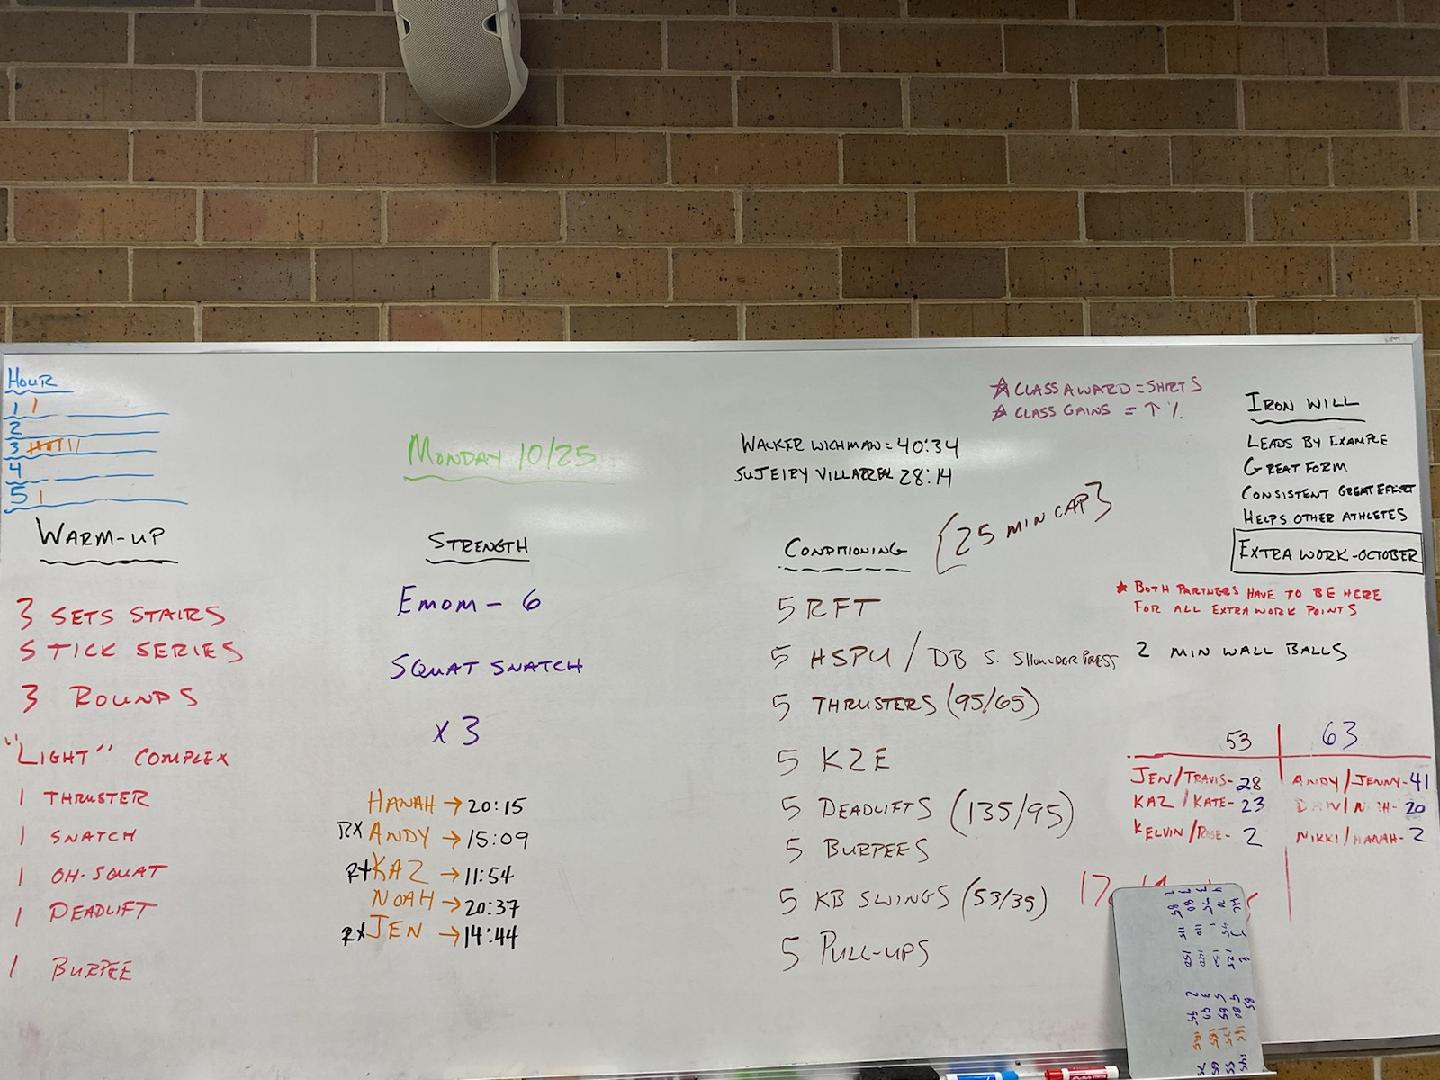 HOUR
1 |
2
3
4
5 |
WARM-UP
3 SETS STAIRS
STICK SERIES
3 ROUNDS
"LIGHT" COMPLEX
1 THRUSTER
1 SNATCH
1 OH-SQUAT
1 DEADLIFT
1 BURPEE
MONDAY 10/25
STRENGTH
EMOM - 6
SQUAT SNATCH
x 3
HANAH → 20:15
RX ANDY → 15:09
RX KAZ → 11:54
NOAH → 20:37
RX JEN → 14:44
WALKER WICHMAN = 40:34
28:14
CONDITIONING [25 MIN CAP]
5 RFT
5 HSPU / DB S. SHOULDER PRESS
5 THRUSTERS (95/65)
5 K2E
5 DEADLIFTS (135/95)
5 BURPEES
5 KB SWINGS (53/35)
5 PULL-UPS
☆ CLASS AWARD = SHIRTS
☆ CLASS GAINS = ↑ %
IRON WILL
LEADS BY EXAMPLE
GREAT FORM
CONSISTENT GREAT EFFORT
HELPS OTHER ATHLETES
EXTRA WORK - OCTOBER
★ BOTH PARTNERS HAVE TO BE HERE
FOR ALL EXTRA WORK POINTS
2 MIN WALL BALLS
53 63
JEN/TRAVIS - 28 ANDY/JENNY - 41
KAZ/KATE - 23 20
KELVIN/ 2 NIKKI/HANAH - 2